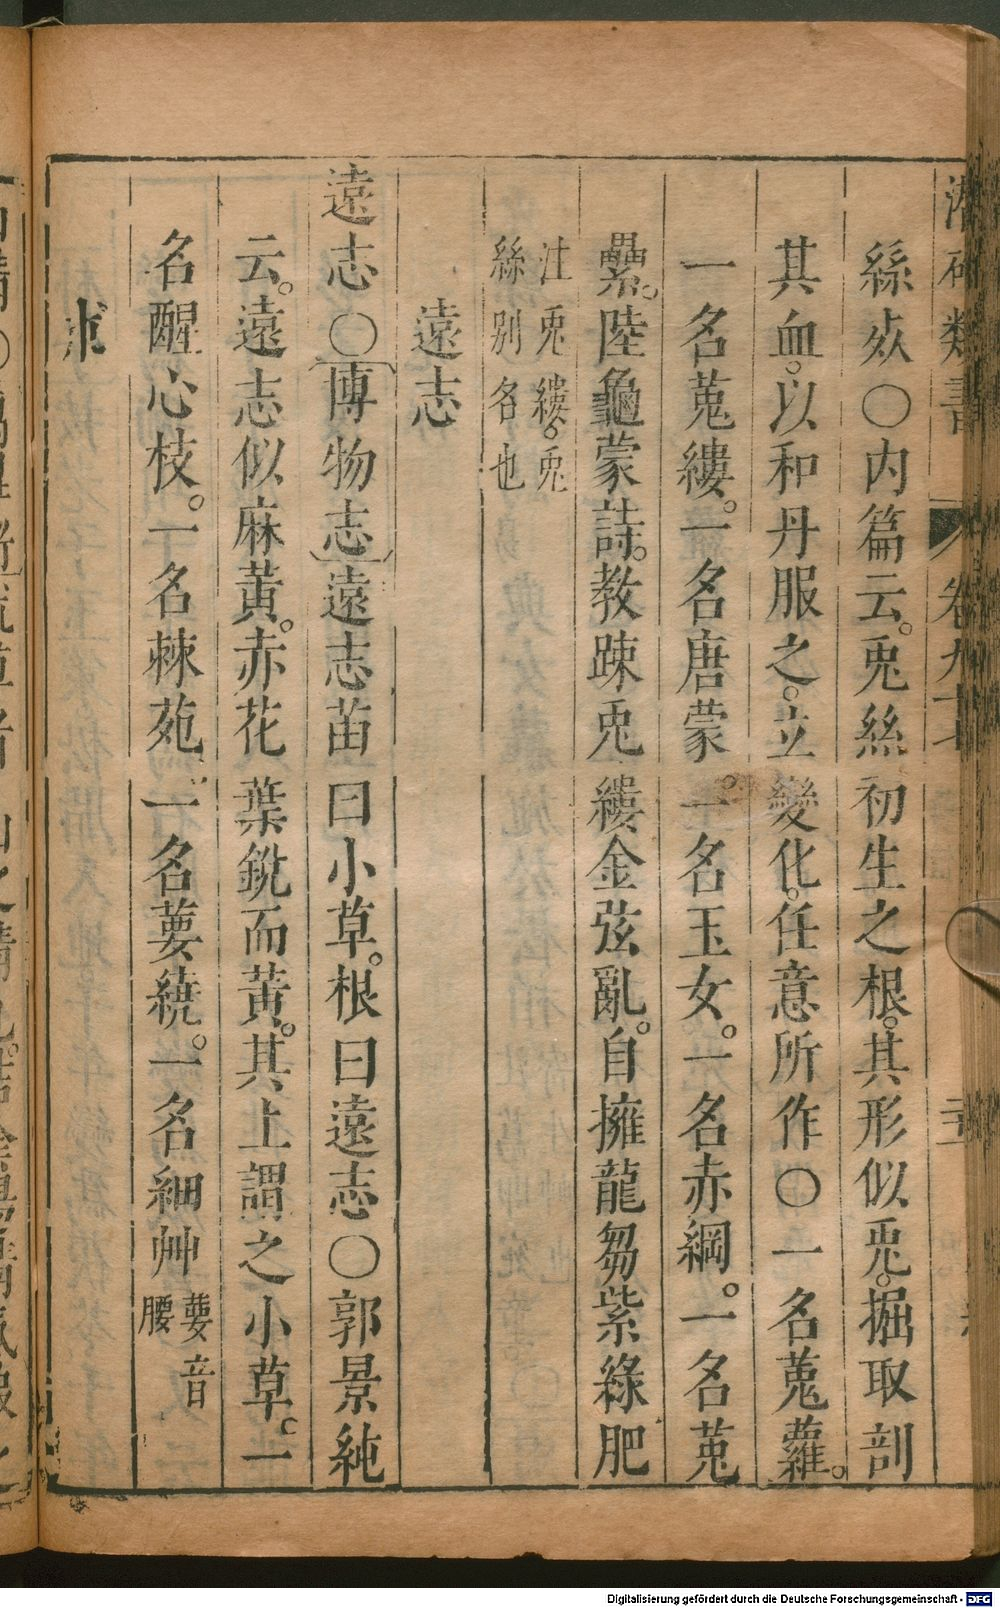 潛確類書 卷九十七
絲妖〇內篇云。兎絲初生之根。其形似兎。掘取剖
其血。以和丹服之。立變化。任意所作〇一名菟蘿。
一名菟縷。一名唐蒙。一名玉女。一名赤綱。一名菟
纍。陸龜蒙詩。教疎兎縷金弦亂。自擁龍芻紫綠肥
注兎縷。兎
絲別名也
遠志
遠志〇博物志遠志苗曰小草。根曰遠志〇郭景純
云。遠志似麻黃。赤花葉銳而黃。其上謂之小草。一
名醒心枝。一名棘菀。一名葽繞。一名細艸
葽音
腰
朮
Digitalisierung gefördert durch die Deutsche Forschungsgemeinschaft - DFG